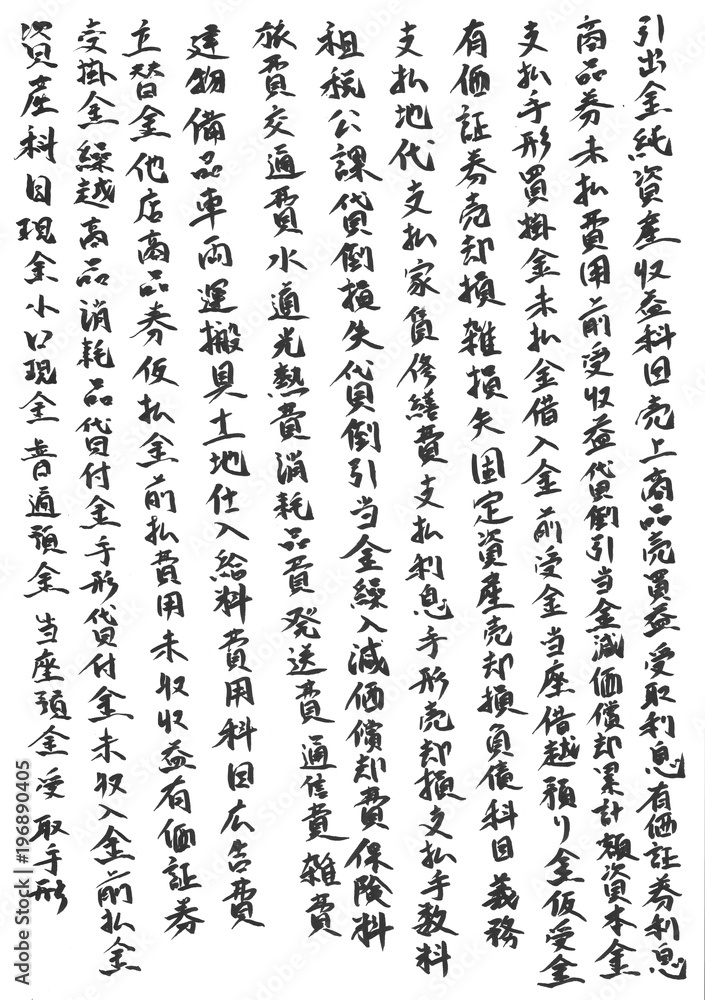 資産科目現金小口現金普通預金当座預金受取手形
売掛金繰越商品消耗品貸付金手形貸付金未収入金前払金
立替金他店商品券仮払金前払費用未収収益有価証券
建物備品車両運搬具土地仕入給料費用科目広告費
旅費交通費水道光熱費消耗品費発送費通信費雑費
租税公課貸倒損失貸倒引当金繰入減価償却費保険料
支払地代支払家賃修繕費支払利息手形売却損支払手数料
有価証券売却損雑損失固定資産売却損負債科目義務
支払手形買掛金未払金借入金前受金当座借越預り金仮受金
商品券未払費用前受収益貸倒引当金減価償却累計額資本金
引出金純資産収益科目売上商品売買益受取利息有価証券利息
Adobe Stock | 196890405